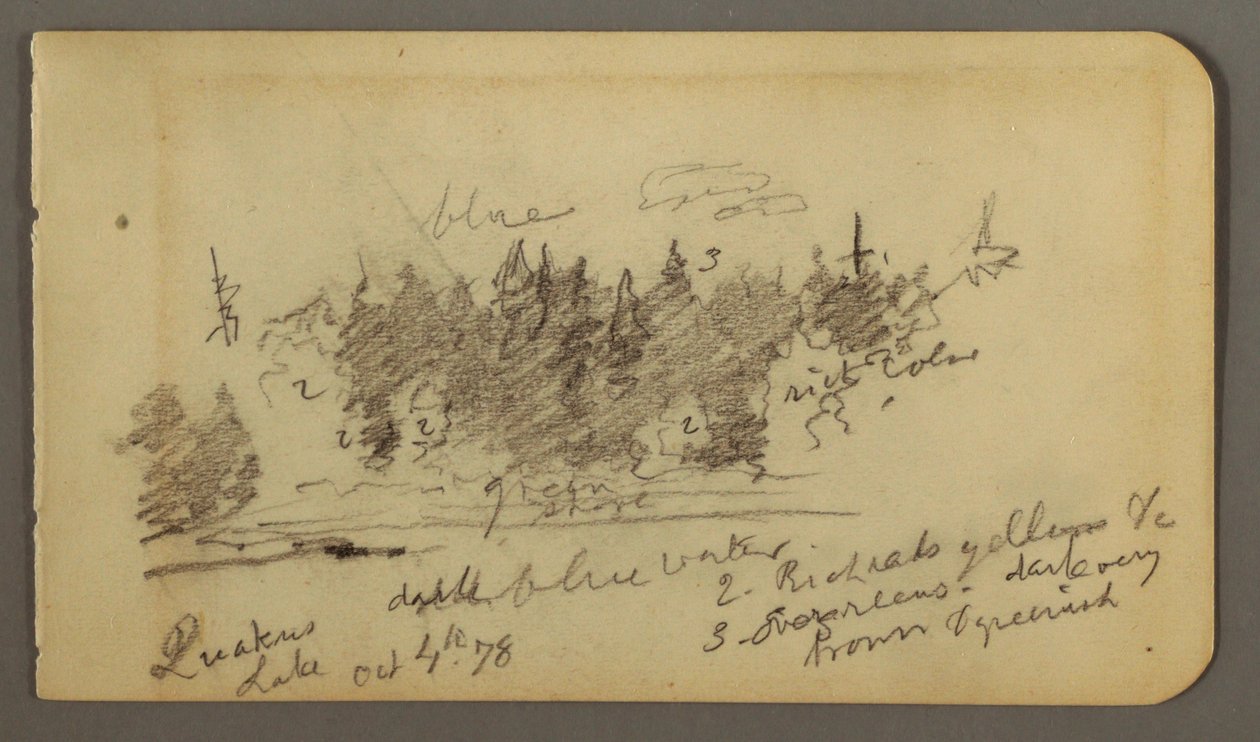 blue
3
2
2
2
2
rich Color
green
shore
dark blue water
2 - Rich reds yellows &c
3 - Evergreens - dark very
brown & greenish
Lake Oct 4th. 78